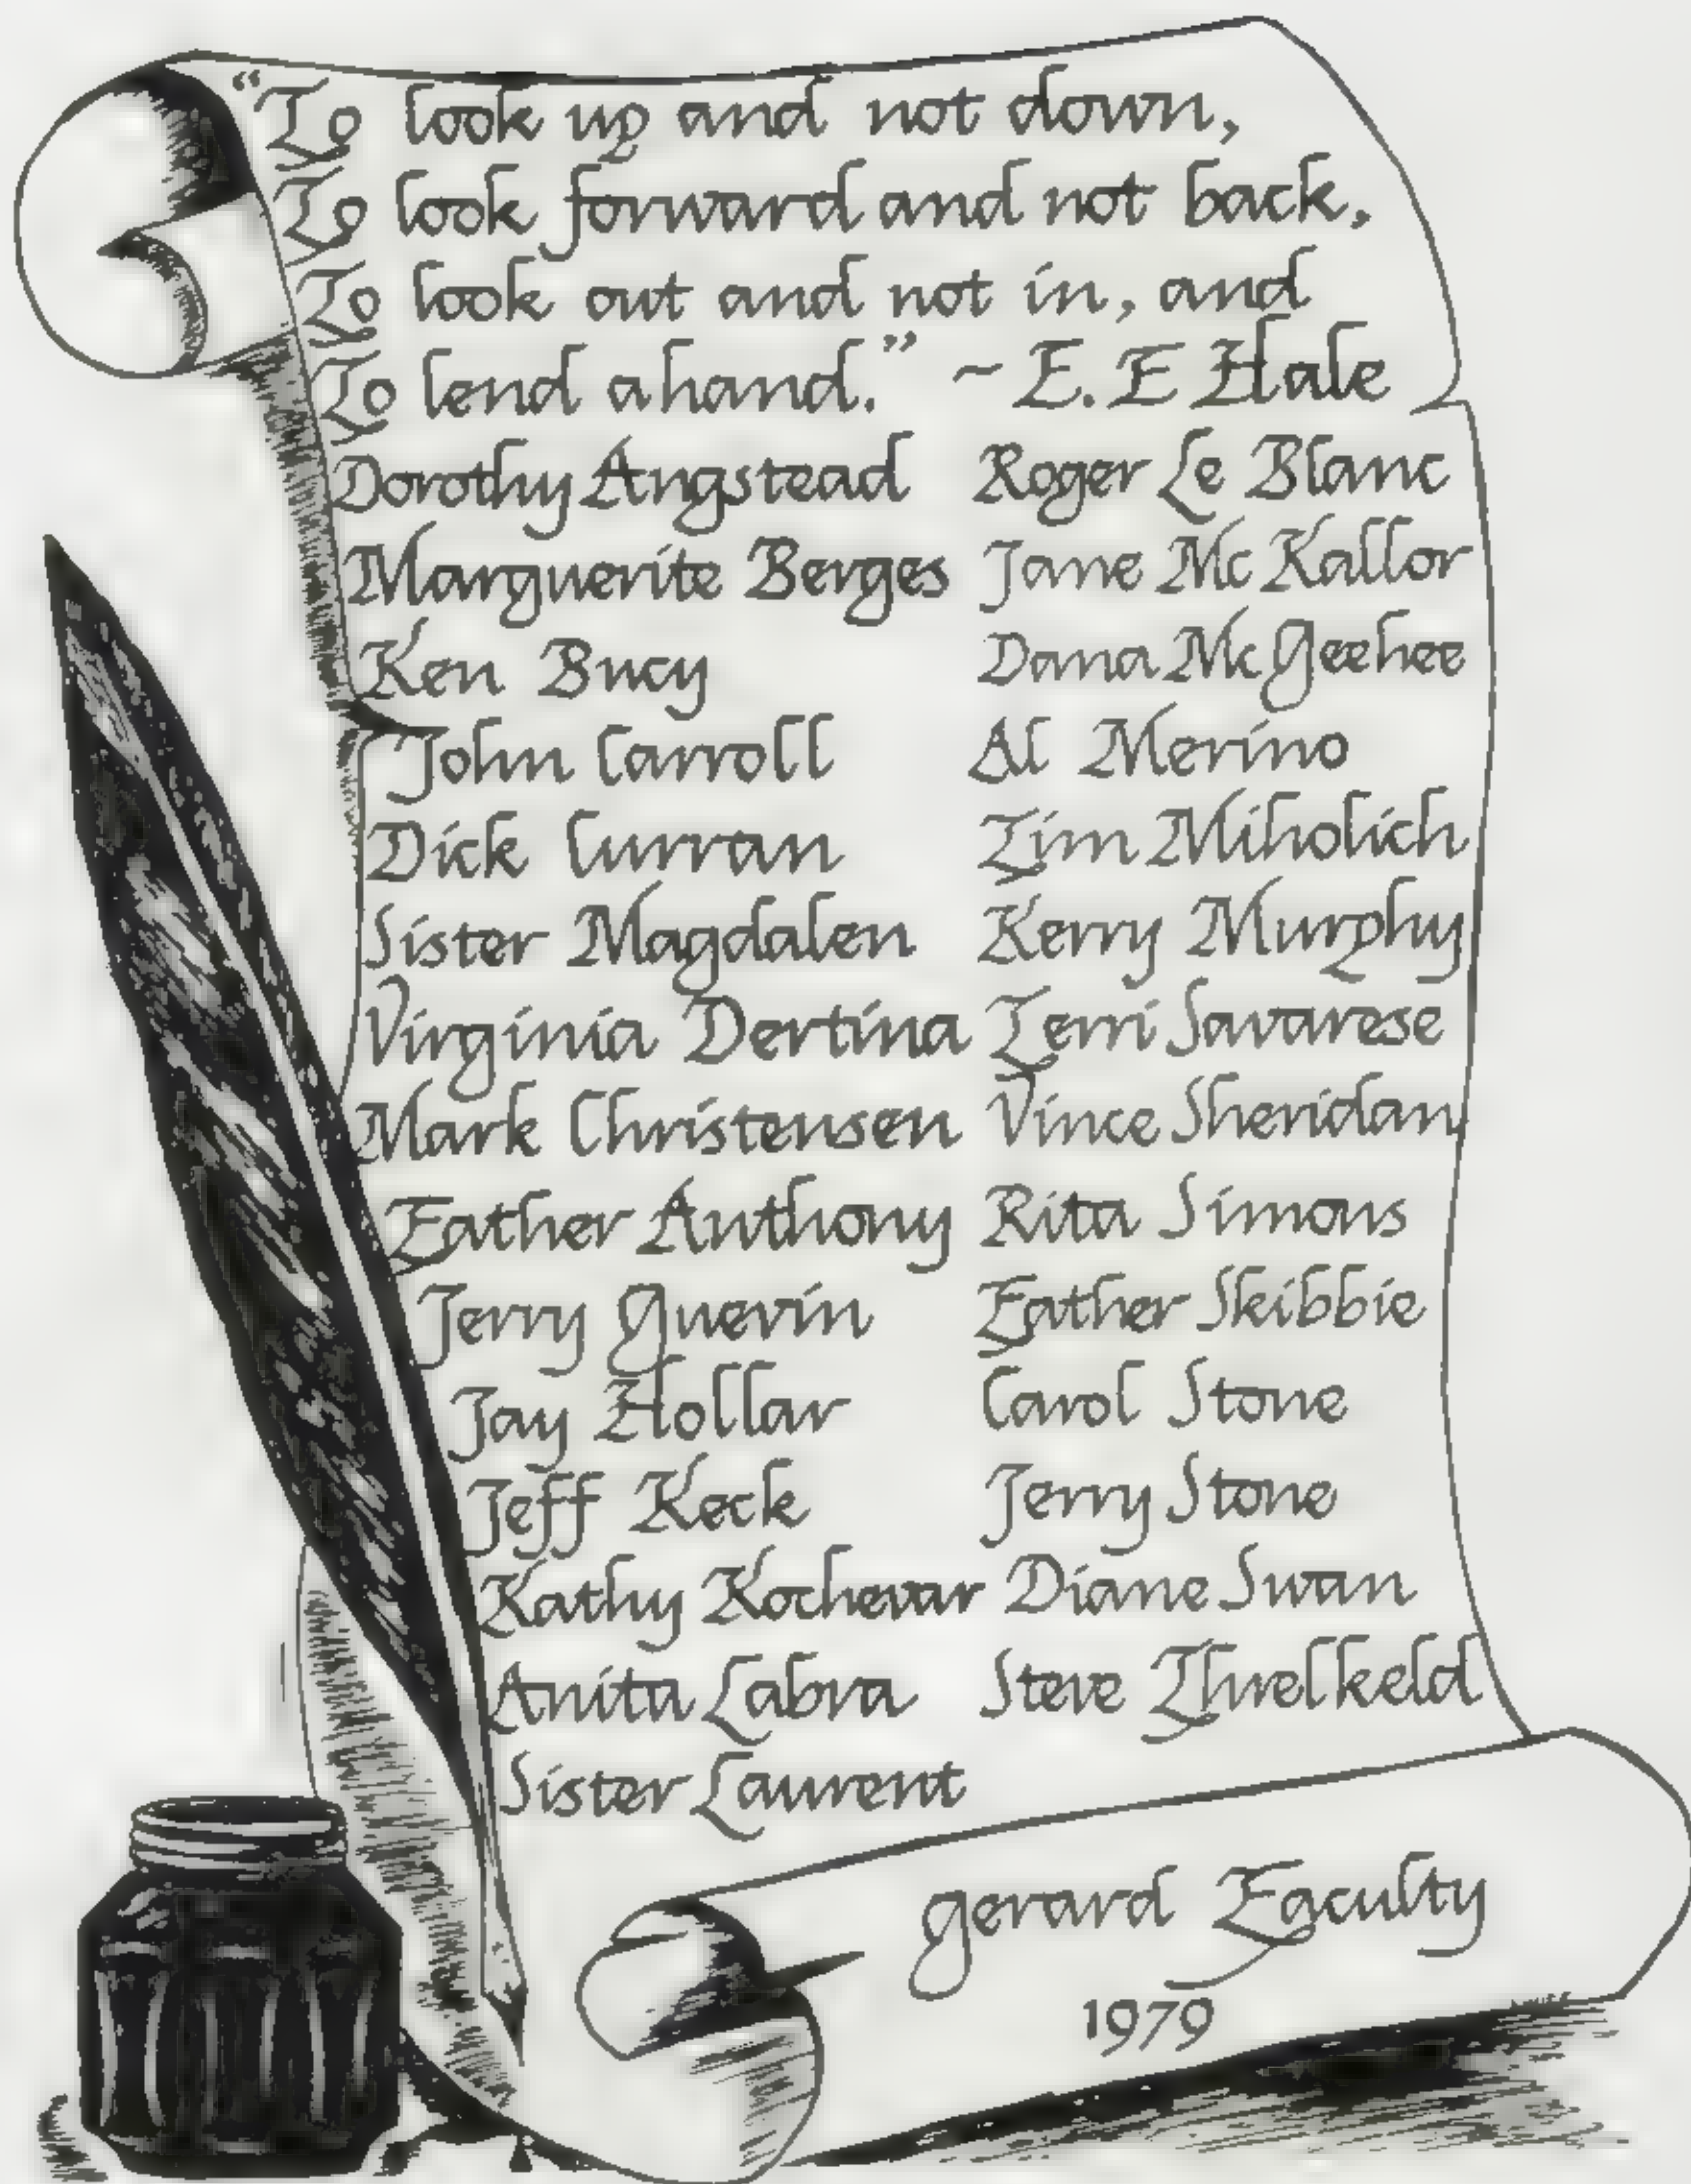 “To look up and not down,
To look forward and not back,
To look out and not in, and
To lend a hand.” ~ E. E Hale
Dorothy Angstead
Marguerite Berges
Ken Bucy
John Carroll
Dick Curran
Sister Magdalen
Virginia Dertina
Mark Christensen
Father Anthony
Jerry Guevin
Jay Hollar
Jeff Keck
Kathy Kochevar
Anita Labra
Sister Laurent
Roger Le Blanc
Jane Mc Kallor
Dana Mc Geehee
Al Merino
Tim Miholich
Kerry Murphy
Terri Savarese
Vince Sheridan
Rita Simons
Father Skibbie
Carol Stone
Jerry Stone
Diane Swan
Steve Threlkeld
Gerard Faculty
1979